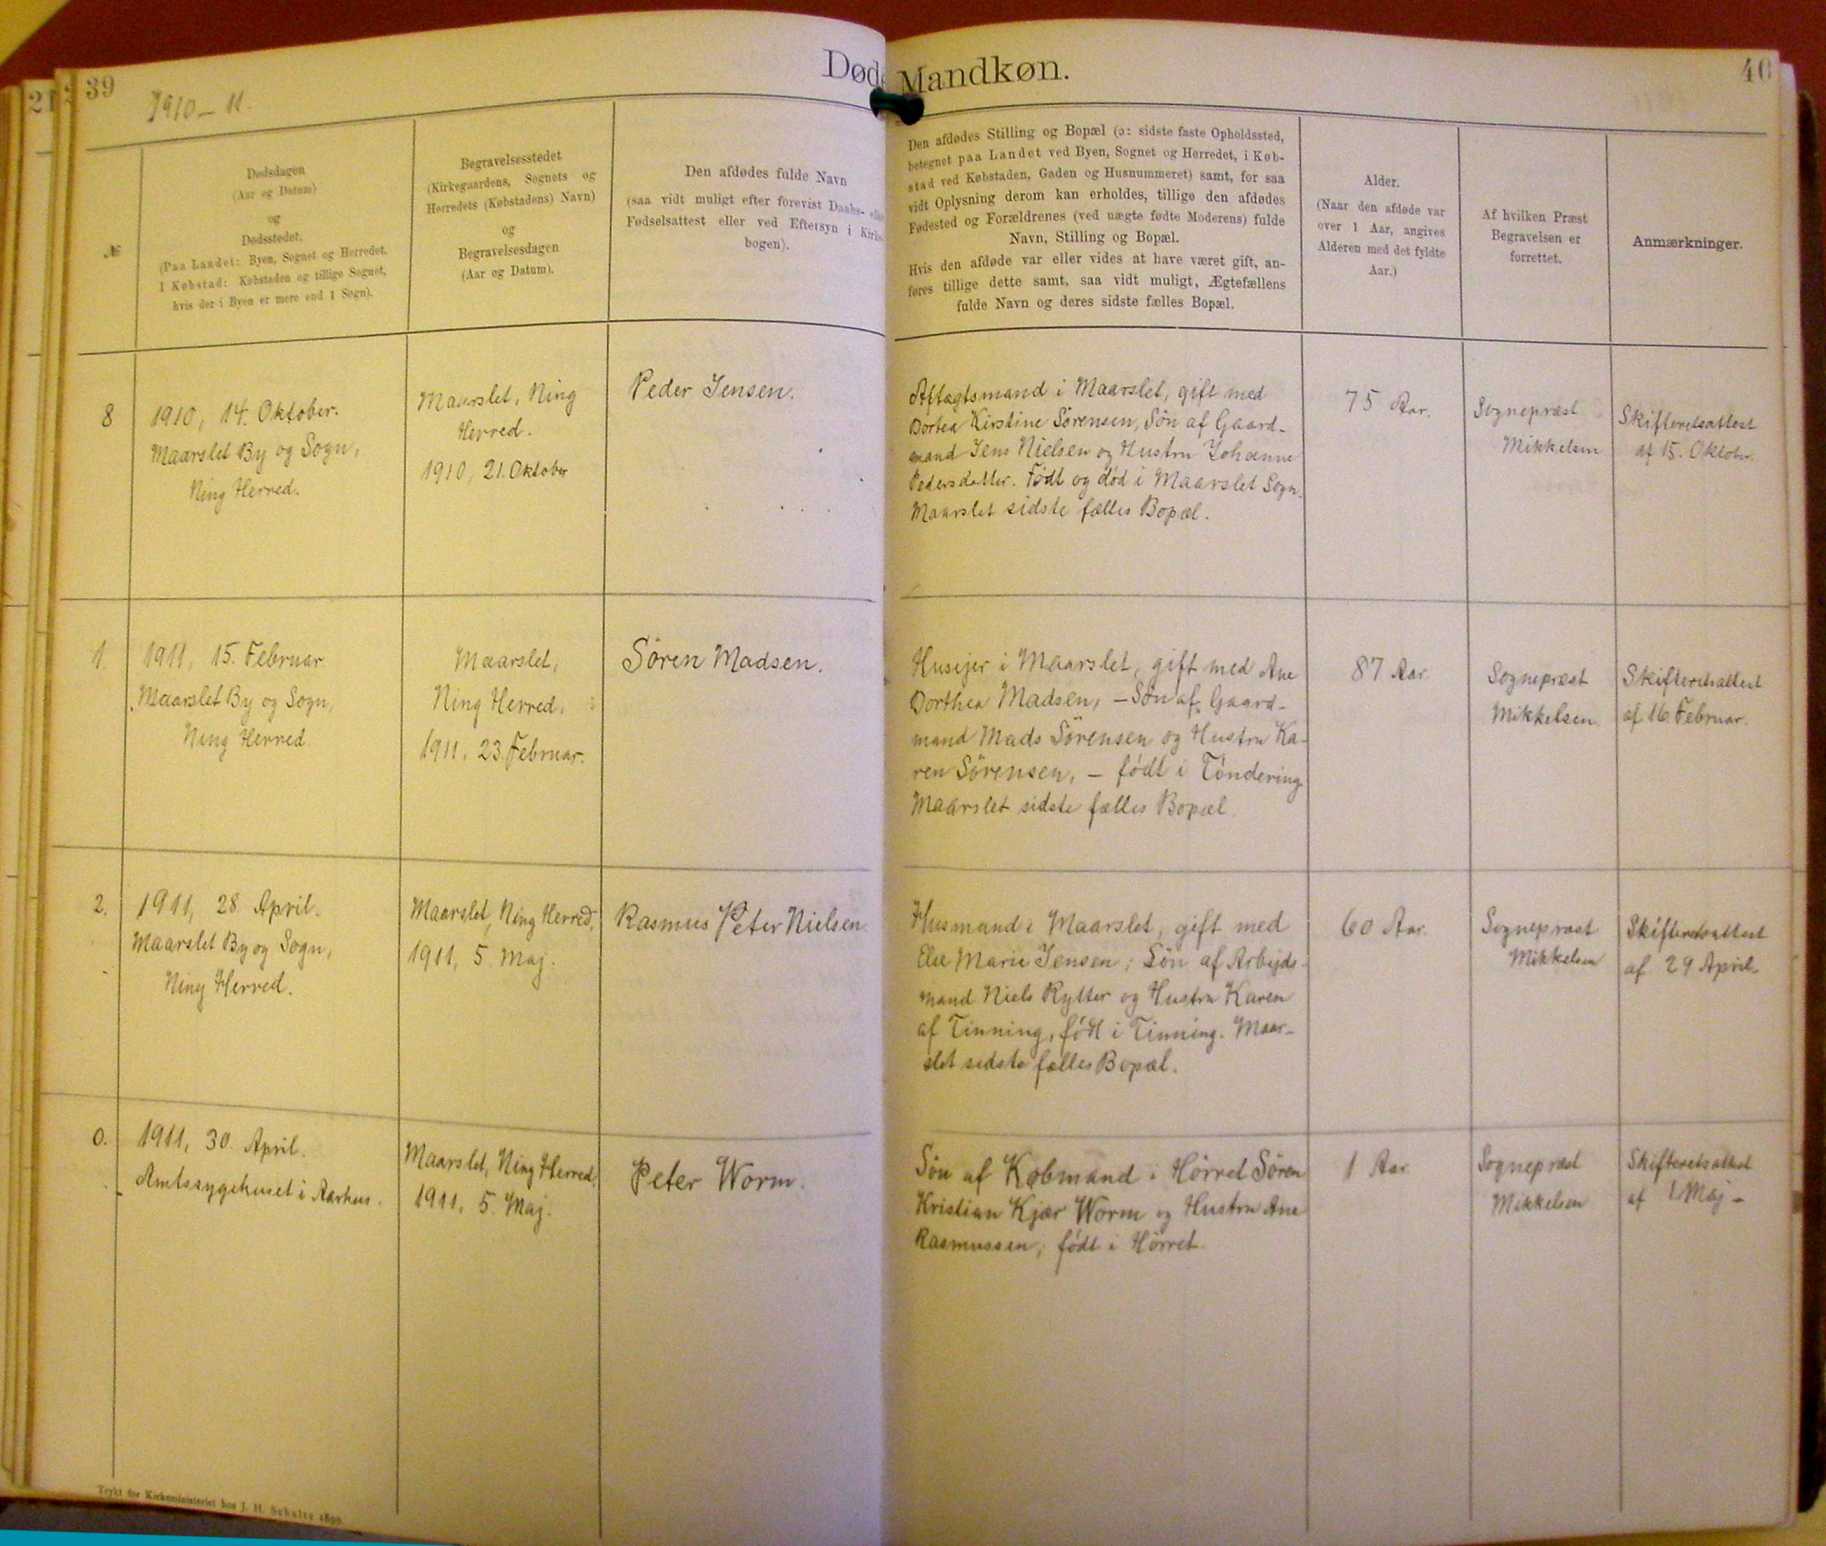 39
Døde
Mandkøn.
40
21
1910-11.
№
Dødsdagen
(Aar og Datum)
og
Dødsstedet.
(Paa Landet: Byen, Sognet og Herredet.
I Købstad: Købstaden og tillige Sognet,
hvis der i Byen er mere end 1 Sogn).
Begravelsesstedet
(Kirkegaardens, Sognets og
Herredets (Købstadens) Navn)
og
Begravelsesdagen
(Aar og Datum).
Den afdødes fulde Navn
(saa vidt muligt efter forevist Daabs- eller
Fødselsattest eller ved Eftersyn i Kirke-
bogen).
Den afdødes Stilling og Bopæl (ɔ: sidste faste Opholdssted,
betegnet paa Landet ved Byen, Sognet og Herredet, i Køb-
stad ved Købstaden, Gaden og Husnummeret) samt, for saa
vidt Oplysning derom kan erholdes, tillige den afdødes
Fødested og Forældrenes (ved uægte fødte Moderens) fulde
Navn, Stilling og Bopæl.
Hvis den afdøde var eller vides at have været gift, an-
føres tillige dette samt, saa vidt muligt, Ægtefællens
fulde Navn og deres sidste fælles Bopæl.
Alder.
(Naar den afdøde var
over 1 Aar, angives
Alderen med det fyldte
Aar.)
Af hvilken Præst
Begravelsen er
forrettet.
Anmærkninger.
8
1910, 14. Oktober.
Maarslet By og Sogn,
Ning Herred.
Maarslet, Ning
Herred.
1910, 21. Oktober
Peder Jensen.
Aftagtsmand i Maarslet, gift med
Dortea Kirstine Sørensen, Søn af Gaard-
mand Jens Nielsen og Hustru Johanne
Pedersdatter. Født og død i Maarslet Sogn.
Maarslet sidste fælles Bopæl.
75 Aar.
Sognepræst
Mikkelsen
Skifteretsattest
af 15. Oktobr.
1.
1911, 15. Februar
Maarslet By og Sogn,
Ning Herred
Maarslet,
Ning Herred.
1911, 23. Februar.
Søren Madsen.
Husejer i Maarslet, gift med Ane
Dorthea Madsen, - Søn af Gaard-
mand Mads Sørensen og Hustru Ka-
ren Sørensen, - født i Tøndering
Maarslet sidste fælles Bopæl
87 Aar.
Sognepræst
Mikkelsen.
Skifteretsattest
af 16. Februar.
2.
1911, 28. April.
Maarslet By og Sogn,
Ning Herred.
Maarslet, Ning Herred,
1911, 5. Maj.
Rasmus Peter Nielsen
Husmand i Maarslet, gift med
Else Marie Jensen; Søn af Arbejds-
mand Niels Rytter og Hustru Karen
af Tinning, født i Tinning. Maar-
slet sidste fælles Bopæl.
60 Aar.
Sognepræst
Mikkelsen
Skifteretsattest
af 29 April.
0.
1911, 30. April.
Amtssygehuset i Aarhus.
Maarslet, Ning Herred,
1911, 5. Maj.
Peter Worm.
Søn af Købmand i Hørret Søren
Kristian Kjær Worm og Hustru Ane
Rasmussen, født i Hørret.
1 Aar
Sognepræst
Mikkelsen
Skifteretsattest
af 1 Maj -
Trykt for Kirkeministeriet hos J. H. Schultz 1899.